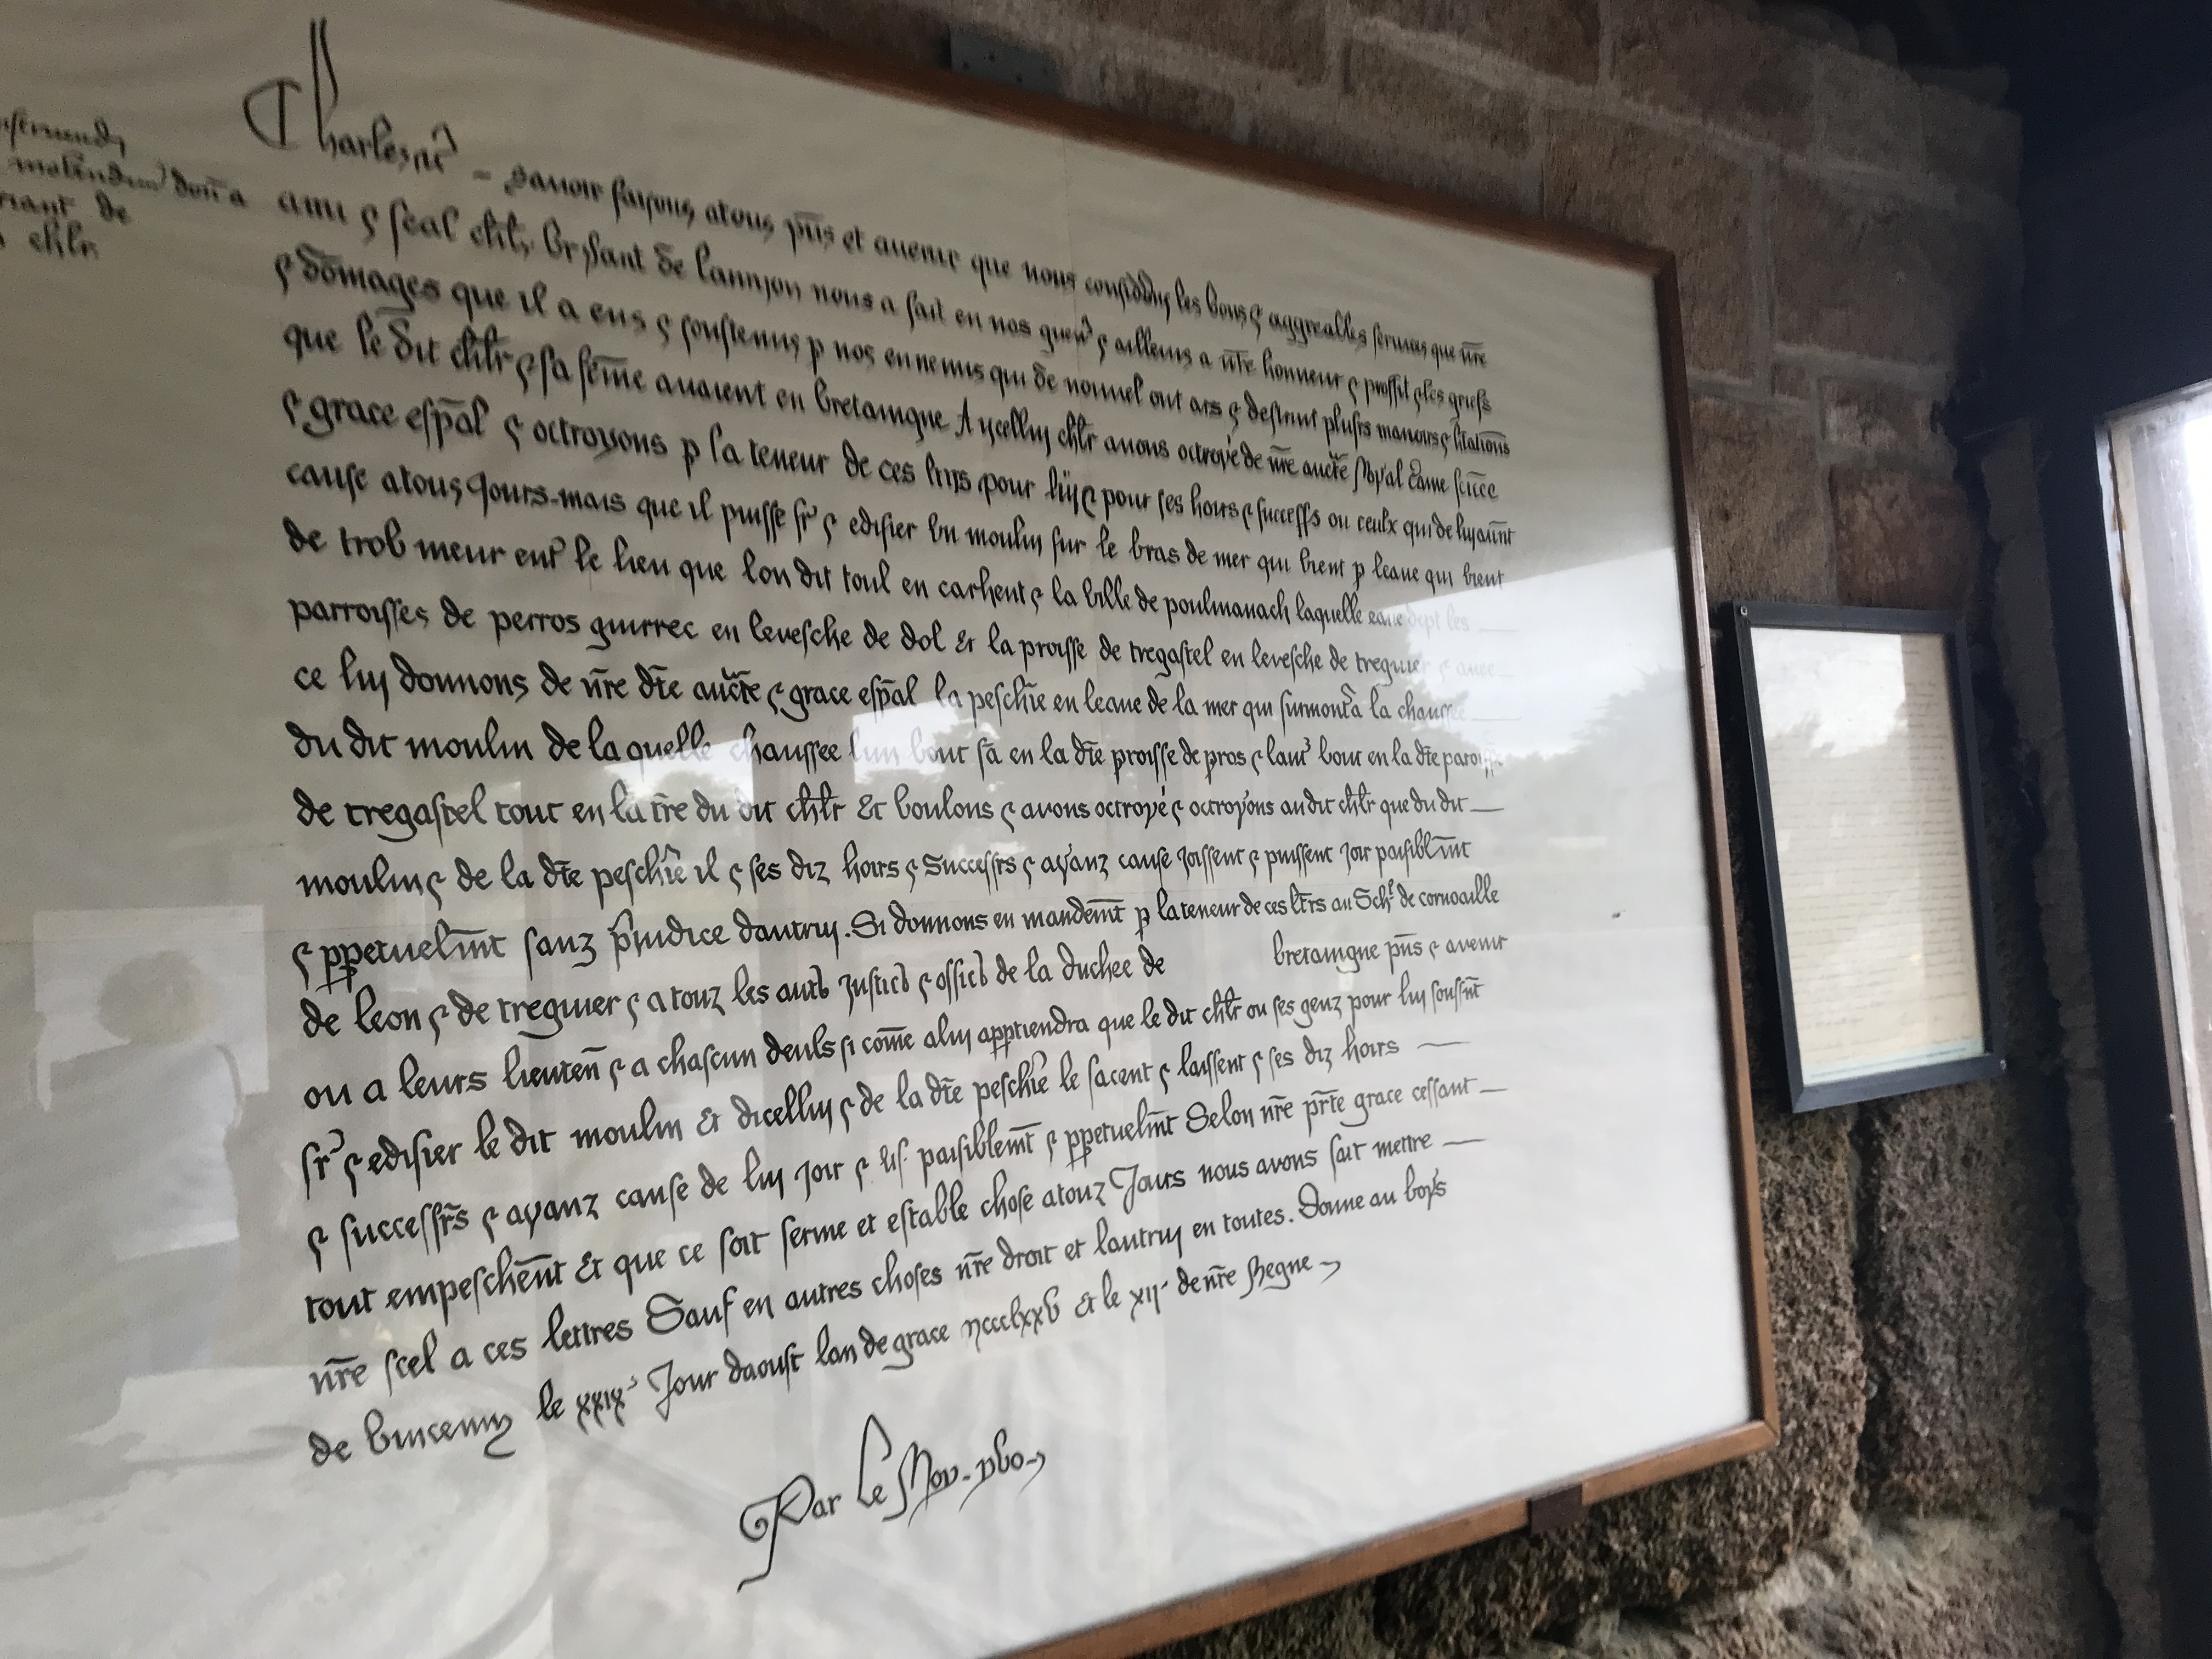 molendin don a
riant de
chlr
Charles etc - sauoir faisons atous pns et auenir que nous considans les bons ⁊ aggreables seruices que nre
ami ⁊ feal chlr bryant de lannyon nous a fait en nos guerr ⁊ ailleurs a nre honneur ⁊ proffit ⁊ les griefs
⁊ domages que il a eus ⁊ soustenus p nos ennemis qui de nouuel ont ars ⁊ destruit plusrs manoirs ⁊ hitations
que le dit chlr ⁊ sa feme auaient en bretaingne A ycelluy chlr auons octroye de nre aucte Royal Came scnce
⁊ grace espal ⁊ octroyons p la teneur de ces lrys pour luy ⁊ pour ses hoirs ⁊ successs ou ceulx qui de luy aunt
cause a tous Jours-mais que il puisse fr ⁊ edifier vn moulin sur le bras de mer qui vient p leaue qui vient
de trob meur entr le lieu que lon dit toul en carhent ⁊ la ville de poulmanach laquelle eaue dept les
parroisses de perros guirrec en levesche de dol Et la proisse de tregastel en levesche de treguier ⁊ avec
ce luy donnons de nre dte aucte ⁊ grace espal la peschie en leaue de la mer qui surmonta la chaussee
du dit moulin de la quelle chaussee lun bout sa en la dte proisse de pros ⁊ lautr bout en la dte paroisse
de tregastel tout en la tre du dit chlr Et voulons ⁊ avons octroyé ⁊ octroyons au dit chlr que du dit
moulin ⁊ de la dte peschie il ⁊ ses diz hoirs ⁊ Successrs ⁊ ayanz cause joissent ⁊ puissent joir paisiblmt
⁊ ppetuelmt sanz priudice dautruy. Si donnons en mandemt p la teneur de ces ltrs au Sch de cornoaille
de leon ⁊ de treguier ⁊ a touz les autrs justics ⁊ offics de la duchee de bretaingne pns ⁊ avenir
ou a leurs lieuten ⁊ a chascun deuls si come a luy apptiendra que le dit chlr ou ses genz pour luy souffnt
fr ⁊ edifier le dit moulin Et dicelluy ⁊ de la dte peschie le facent ⁊ laissent ⁊ ses diz hoirs
⁊ successrs ⁊ ayanz cause de luy joir ⁊ us paisiblemt ⁊ ppetuelmt Selon nre prte grace cessant
tout empeschent Et que ce soit ferme et estable chose a touz Jours nous avons fait mettre
nre scel a ces lettres Sauf en autres choses nre droit et lautruy en toutes. Donne au boys
de vincenns le xxix Jour daoust lan de grace mccclxxv Et le xii de nre Regne
Par le Roy - ybo